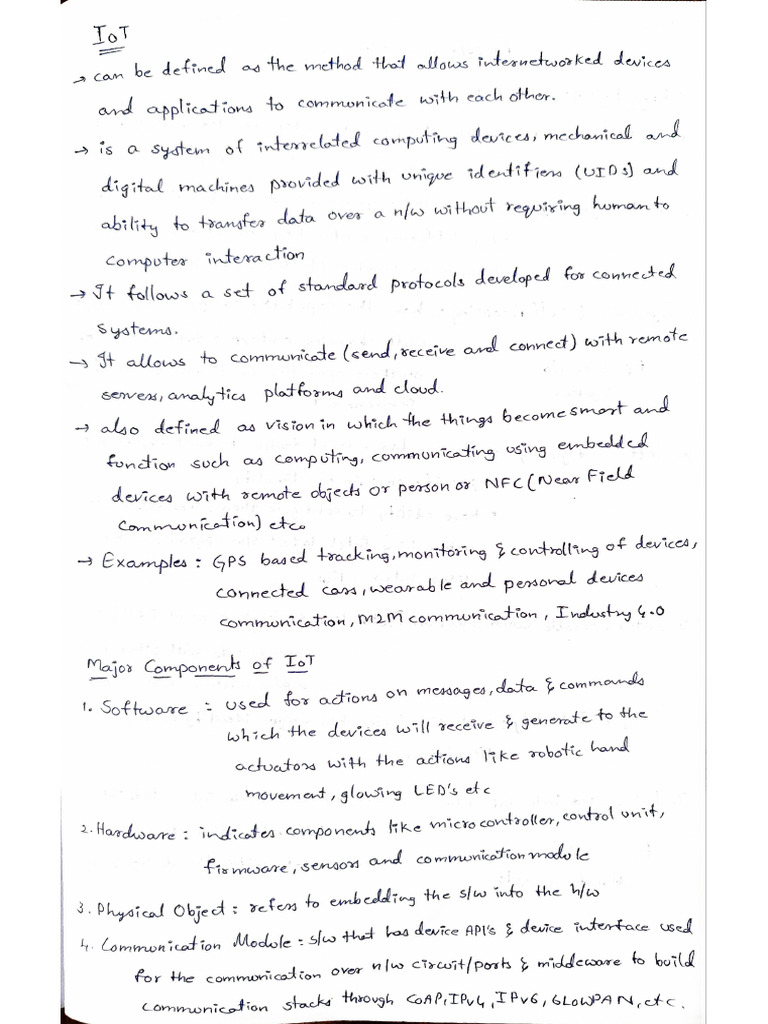 IoT
→ can be defined as the method that allows internetworked devices
and applications to communicate with each other.
→ is a system of interrelated computing devices, mechanical and
digital machines provided with unique identifiers (UIDs) and
ability to transfer data over a n/w without requiring human to
computer interaction
→ It follows a set of standard protocols developed for connected
systems.
→ It allows to communicate (send, receive and connect) with remote
servers, analytics platforms and cloud.
→ also defined as vision in which the things become smart and
function such as computing, communicating using embedded
devices with remote objects or person or NFC (Near Field
Communication) etc.
→ Examples : GPS based tracking, monitoring & controlling of devices,
connected cars, wearable and personal devices
communication, M2M communication, Industry 4.0
Major Components of IoT
1. Software : used for actions on messages, data & commands
which the devices will receive & generate to the
actuators with the actions like robotic hand
movement, glowing LED's etc
2. Hardware : indicates components like microcontroller, control unit,
firmware, sensors and communication module
3. Physical Object : refers to embedding the s/w into the h/w
4. Communication Module : s/w that has device API's & device interface used
for the communication over n/w circuit/ports & middleware to build
communication stacks through CoAP, IPv4, IPv6, 6LOWPAN, etc.